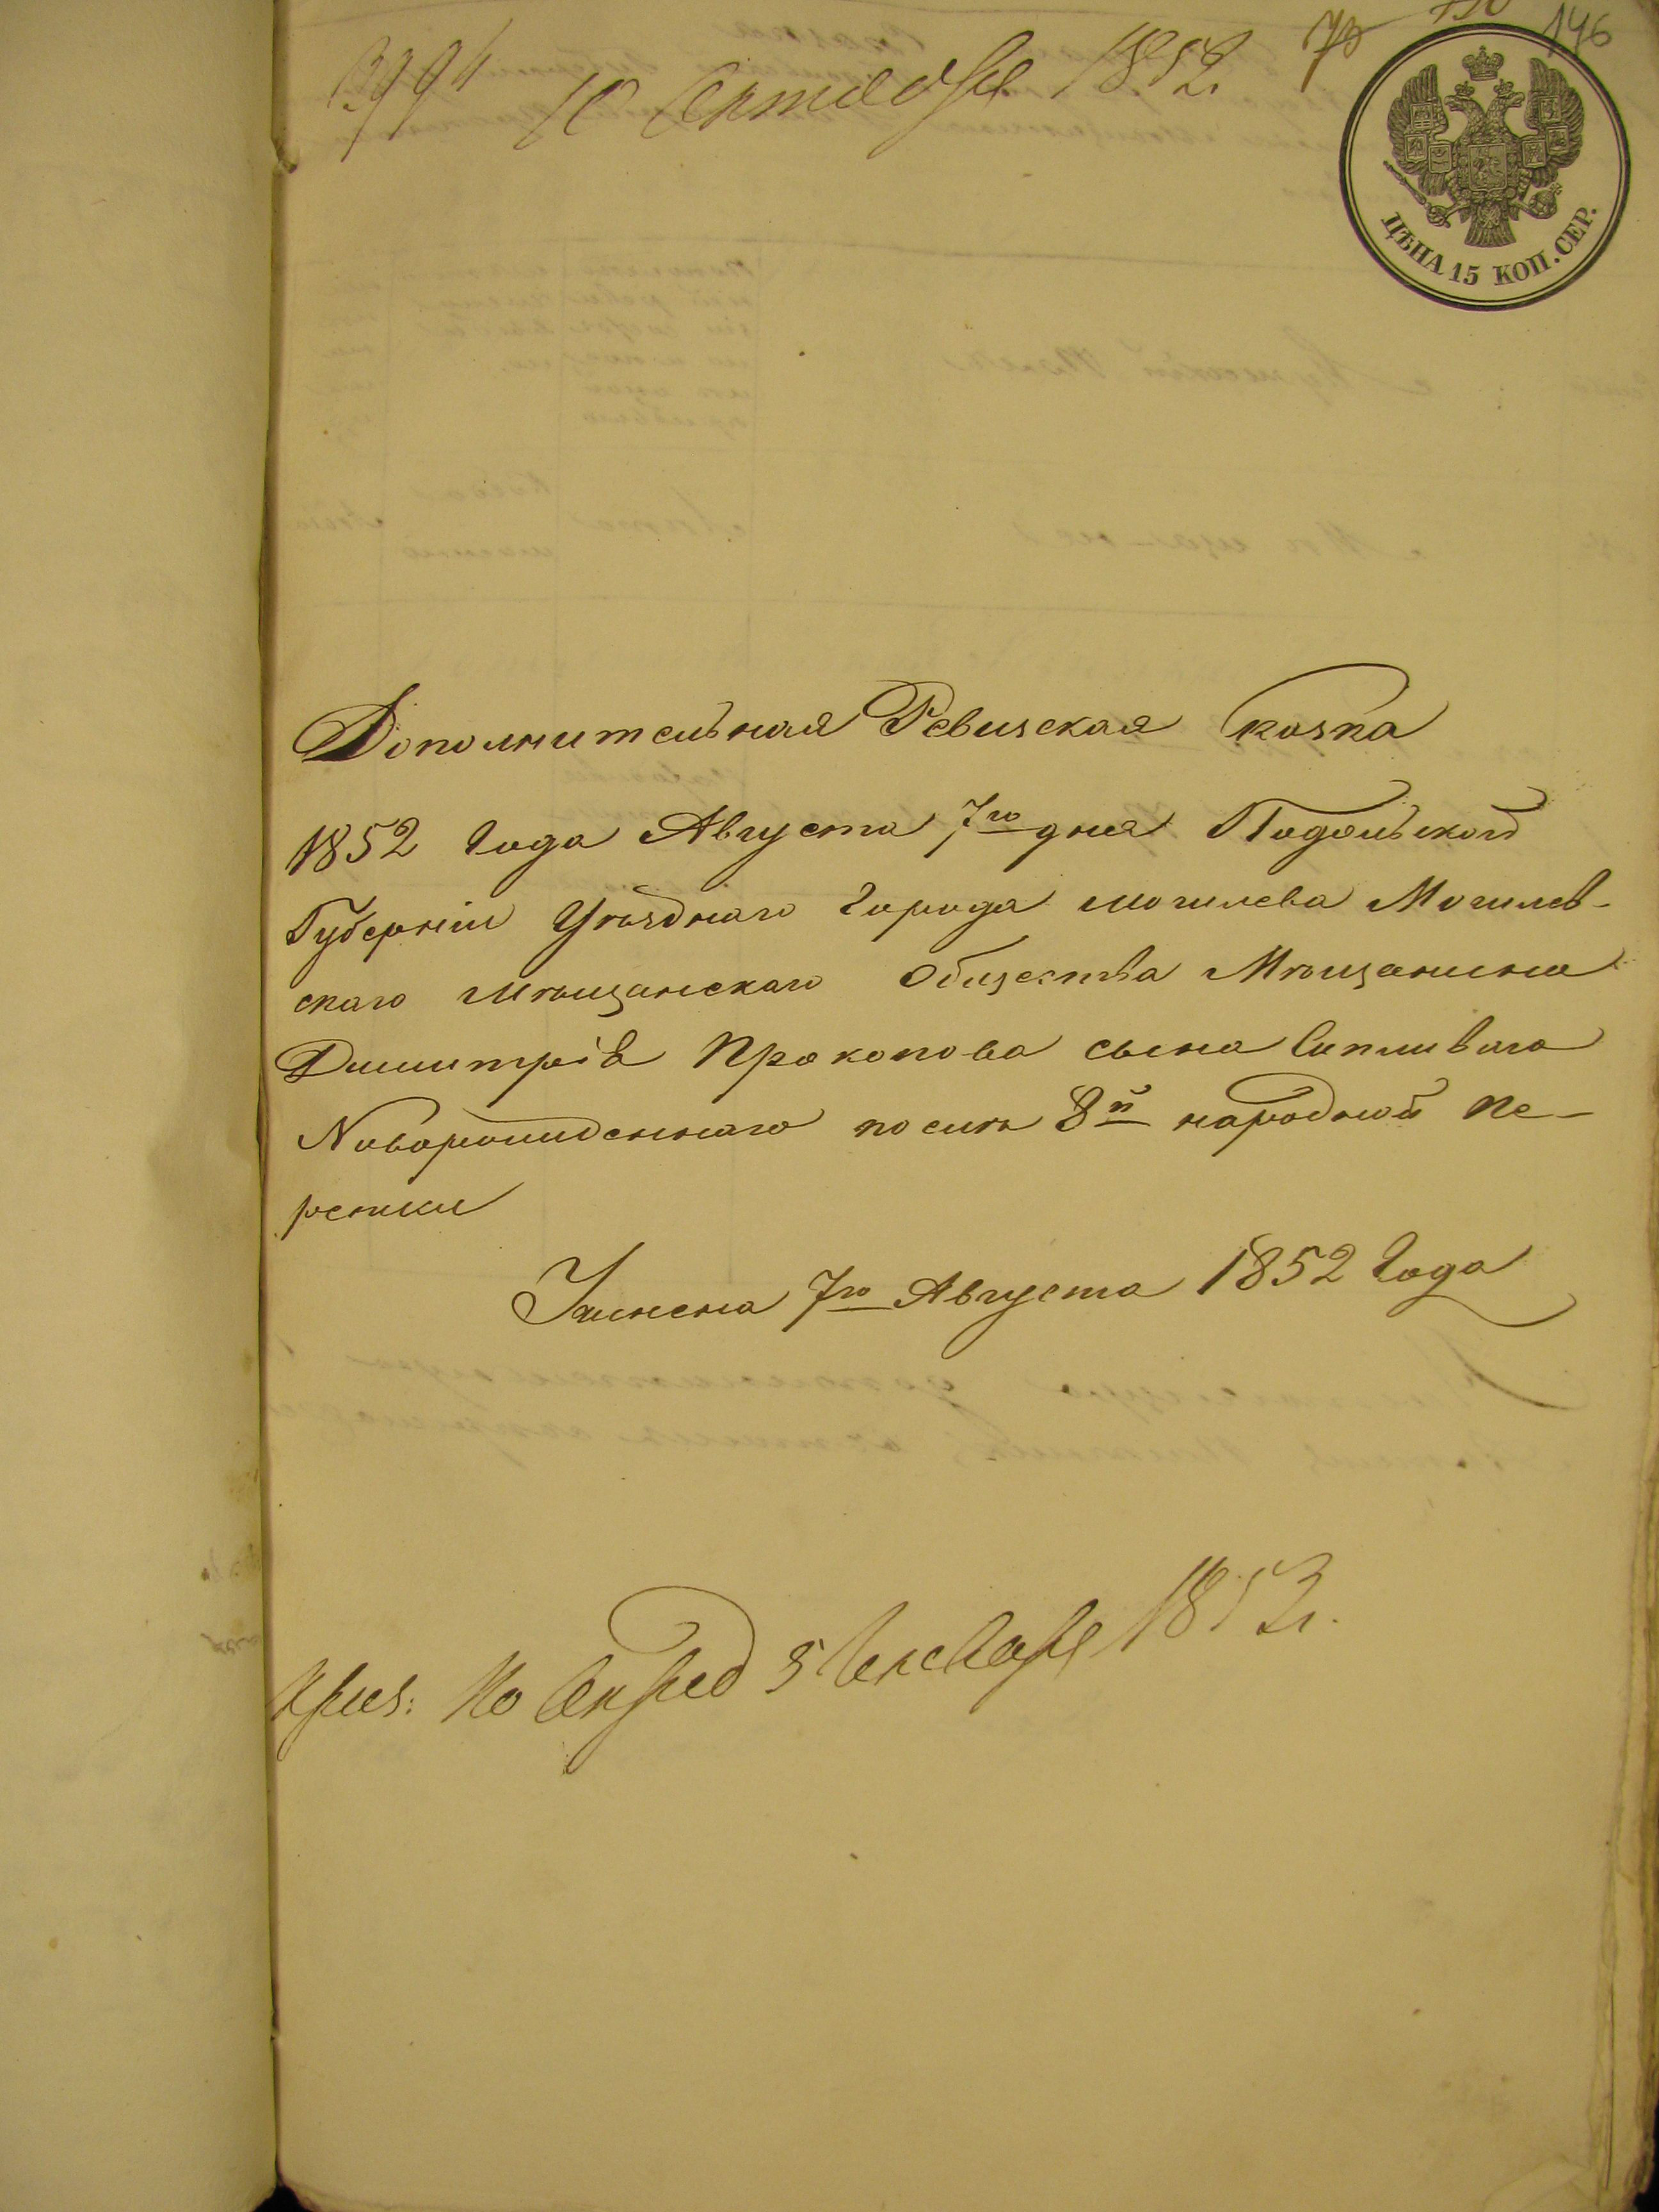 146
10 Сентября 1852.
ЦѢНА 15 КОП. СЕР.
Дополнительная Ревизская Сказка
1852 Года Августа 7го дня Подольской
Губерніи Уѣзднаго Города Могилева Могилев-
скаго Мѣщанскаго Общества Мѣщанина
Димитрія Прокопова сына Сипливаго
Новорожденнаго послѣ 8й народной пе-
реписи
7го Августа 1852 Года
5 Генваря 1853.